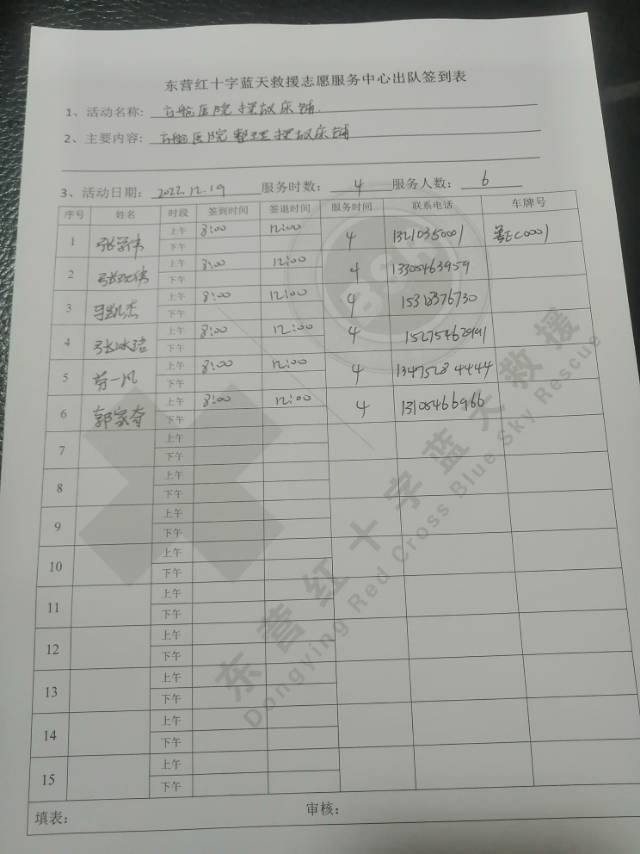 东营红十字蓝天救援志愿服务中心出队签到表
1、活动名称: 方舱医院摆放床铺
2、主要内容: 方舱医院整理摆放床铺
3、活动日期: 2022.12.19 服务时数: 4 服务人数: 6
序号 姓名 时段 签到时间 签退时间 服务时间 联系电话 车牌号
1 上午 8:00 12:00 4 13210350001 鲁EC0001
下午
2 上午 8:00 12:00 4 13305463959
下午
3 上午 8:00 12:00 4 15318376730
下午
4 上午 8:00 12:00 4
下午
5 劳一凡 上午 8:00 12:00 4 13475284444
下午
6 郭家奇 上午 8:00 12:00 4 13105466966
下午
7 上午
下午
8 上午
下午
9 上午
下午
10 上午
下午
11 上午
下午
12 上午
下午
13 上午
下午
14 上午
下午
15 上午
下午
填表: 审核:
东营红十字蓝天救援
Dongying Red Cross Blue Sky Rescue